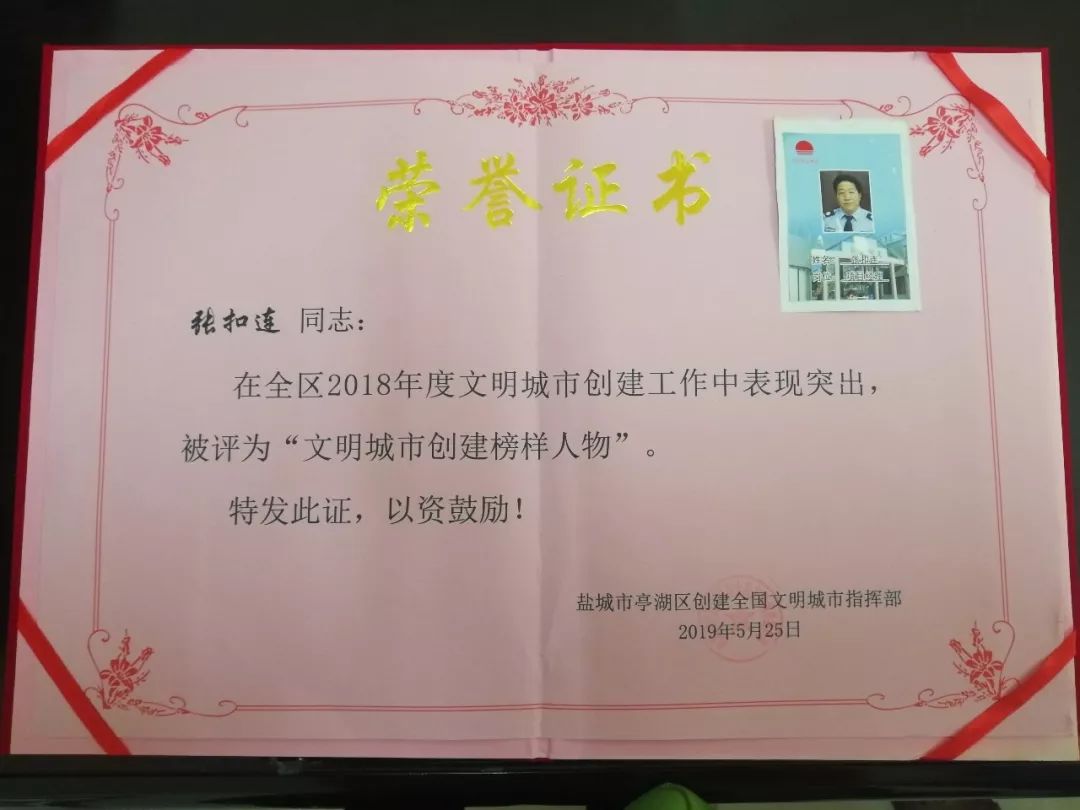 荣誉证书
姓名 张扣连
岗位
张扣连 同志：
在全区2018年度文明城市创建工作中表现突出，
被评为“文明城市创建榜样人物”。
特发此证，以资鼓励！
盐城市亭湖区创建全国文明城市指挥部
2019年5月25日